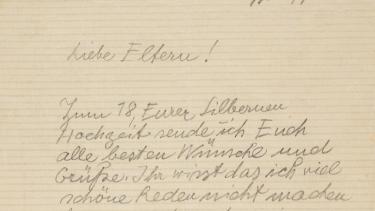 Liebe Eltern!
Zum 18, Eurer Silbernen
Hochzeit sende ich Euch
alle besten Wünsche und
Grüße. Ihr wisst das ich viel
schöne Reden nicht machen